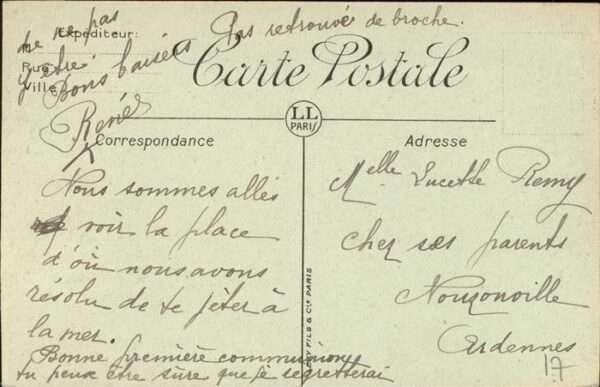 Carte Postale
Expéditeur:
M
Rue
Ville
LL
PARIS
Correspondance
Nous sommes allés
voir la place
d'où nous avons
résolu de te jeter à
la mer.
Bonne première communion
tu peux être sûre que je regretterai
de ne pas
y être
Bons baisers
Renée
Pas retrouvé de broche.
FILS & Cie PARIS
Adresse
Melle Lucette Remy
chez ses parents
Nouzonville
Ardennes
17